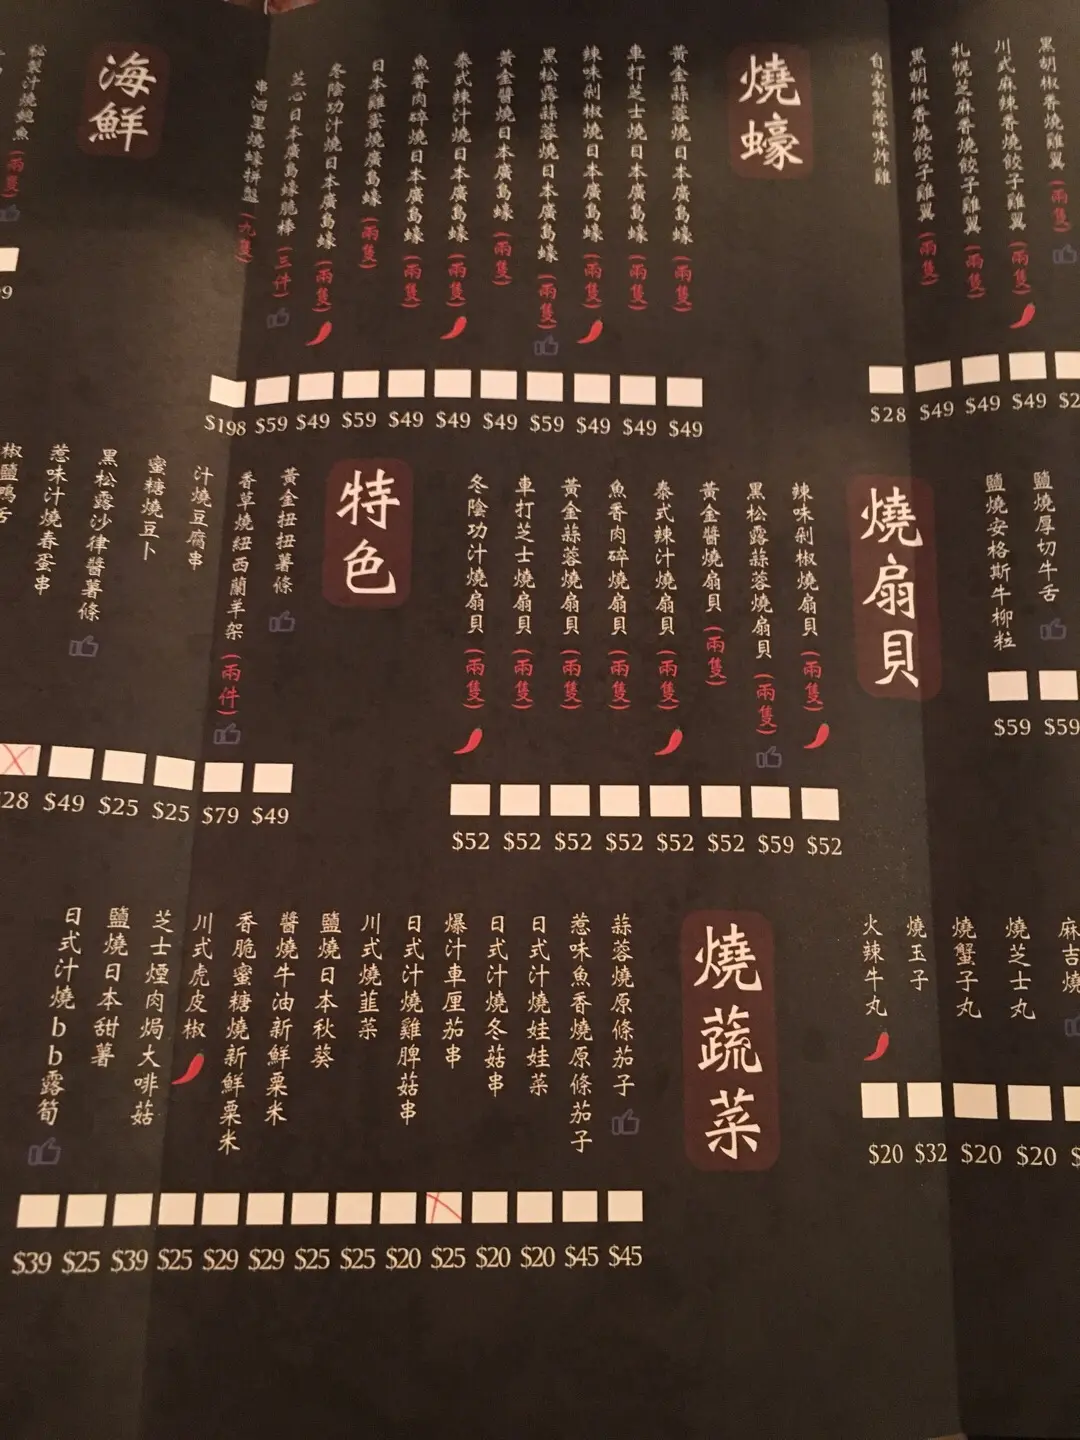 黑胡椒香燒雞翼(兩隻)
川式麻辣香燒餃子雞翼(兩隻) $49
札幌芝麻香燒餃子雞翼(兩隻) $49
黑胡椒香燒餃子雞翼(兩隻) $49
自家製惹味炸雞 $28
燒蠔
黃金蒜蓉燒日本廣島蠔(兩隻) $49
車打芝士燒日本廣島蠔(兩隻) $49
辣味剁椒燒日本廣島蠔(兩隻) $49
黑松露蒜蓉燒日本廣島蠔(兩隻) $59
黃金醬燒日本廣島蠔(兩隻) $49
泰式辣汁燒日本廣島蠔(兩隻) $49
魚香肉碎燒日本廣島蠔(兩隻) $49
日本雞蛋燒廣島蠔(兩隻) $59
冬陰功汁燒日本廣島蠔(兩隻) $49
芝心日本廣島蠔脆棒(三件) $59
串酒里燒蠔拼盤(九隻) $198
海鮮
秘製汁燒鮑魚(兩隻)
鹽燒厚切牛舌 $59
鹽燒安格斯牛柳粒 $59
燒扇貝
辣味剁椒燒扇貝(兩隻) $52
黑松露蒜蓉燒扇貝(兩隻) $59
黃金醬燒扇貝(兩隻) $52
泰式辣汁燒扇貝(兩隻) $52
魚香肉碎燒扇貝(兩隻) $52
黃金蒜蓉燒扇貝(兩隻) $52
車打芝士燒扇貝(兩隻) $52
冬陰功汁燒扇貝(兩隻) $52
特色
黃金扭扭薯條 $49
香草燒紐西蘭羊架(兩件) $79
汁燒豆腐串 $25
蜜糖燒豆卜 $25
黑松露沙律醬薯條 $49
惹味汁燒春蛋串 $28
椒鹽鴨舌
麻吉燒
燒芝士丸 $20
燒蟹子丸 $20
燒玉子 $32
火辣牛丸 $20
燒蔬菜
蒜蓉燒原條茄子 $45
惹味魚香燒原條茄子 $45
日式汁燒娃娃菜 $20
日式汁燒冬菇串 $20
爆汁車厘茄串 $25
日式汁燒雞脾菇串 $20
川式燒韮菜 $25
鹽燒日本秋葵 $25
醬燒牛油新鮮粟米 $29
香脆蜜糖燒新鮮粟米 $29
川式虎皮椒 $25
芝士煙肉焗大啡菇 $39
鹽燒日本甜薯 $25
日式汁燒bb露筍 $39